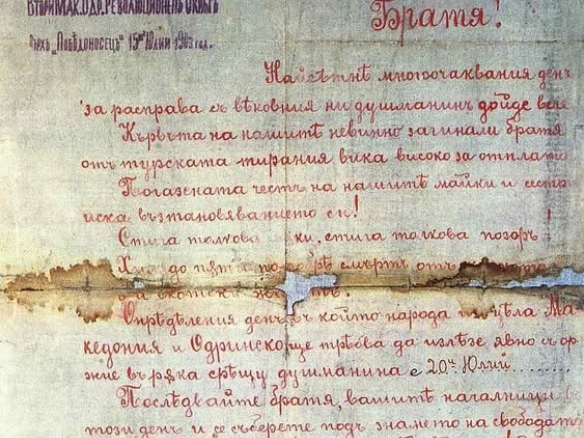 ВТОРИЙ МАК. ОДР. РЕВОЛЮЦИОНЕНЪ ОКРѪГЪ
Върхъ „Побѣдоносецъ" 15ий Юлий 1903 год.
Братя!
Най-сѣтнѣ многоочаквания день
за расправа съ вѣковния ни душманинъ дойде вече
Кървьта на нашитѣ невинно загинали братя
отъ турската тирания вика високо за отплата
Погазената честь на нашитѣ майки и сестри
иска възтановяванието си!
Стига толкова мѫки, стига толкова позоръ!
до пѫти смърть отъ
скотски
Опрѣдѣления день въ който народа изъ цѣла Ма-
кедония и Одринско ще трѣбва да излѣзе явно съ орѫ-
жие въ рѫка срѣщу душманина е 20ий Юлий
Послѣдвайте братя, вашитѣ началници въ
този день и се съберете подъ знамето на свободата